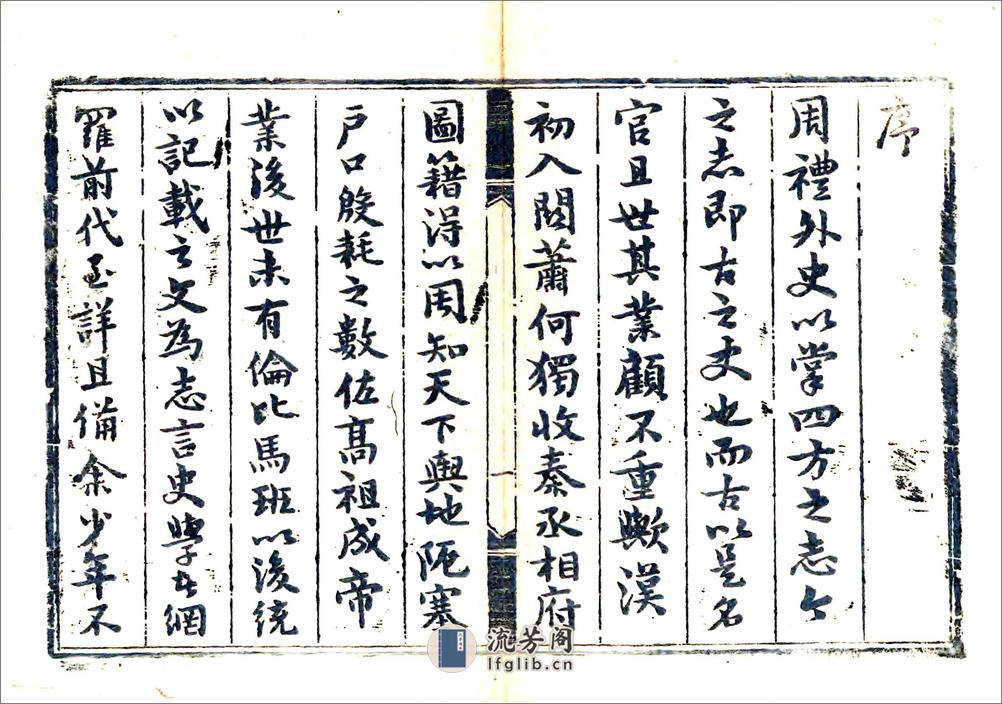 序
周禮外史以掌四方之志今
之志即古之史也而古以是名
官且世其業顧不重歟漢
初入關蕭何獨收秦丞相府
圖籍得以周知天下輿地阨塞
戶口殷耗之數佐高祖成帝
業後世未有倫比馬班以後統
以記載之文為志言史學者網
羅前代至詳且備余少年不
一
流芳阁
lfglib.cn